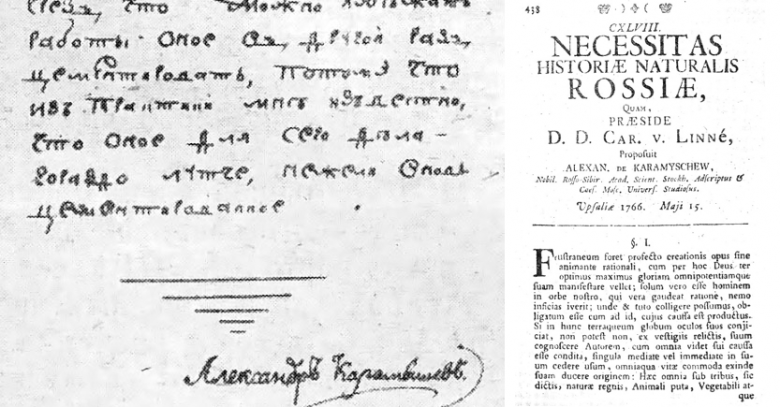 что можно
работы. Оное въ, другой разъ,
цементировать, потому что
изъ практики мнѣ извѣстно,
что оное для сего дѣла –
гораздо лутче, нежели
цементированное
Александръ Карамышевъ.
438
CXLVIII.
NECESSITAS
HISTORIÆ NATURALIS
ROSSIÆ,
QUAM,
PRÆSIDE
D. D. CAR. v. LINNÉ,
Proposuit
ALEXAN. DE KARAMYSCHEW,
Nobil. Rosso-Sibir. Acad. Scient. Stockh. Adscriptus &
Caes. Mosc. Univers. Studiosus.
Upsaliæ 1766. Maji 15.
§. I.
Frustraneum foret profecto creationis opus sine
animante rationali, cum per hoc Deus ter
optimus maximus gloriam omnipotentiamque
suam manifestare vellet; solum vero esse hominem
in orbe nostro, qui vera gaudeat ratione, nemo
inficias iverit; unde & tuto colligere possumus, ob-
ligatum esse eum ad id, cujus caussa est productus.
Si in hunc terraqueum globum oculos suos conji-
ciat, non potest non, ex vestigiis relictis, suum
cognoscere Autorem, cum omnia videt sui caussa
esse condita, singula mediate vel immediate in su-
um cedere usum, omniaqua vitæ commoda exinde
suam ducere originem: Hæc omnia sub tribus, sic
dictis, naturæ regnis, Animali puta, Vegetabili at-
que